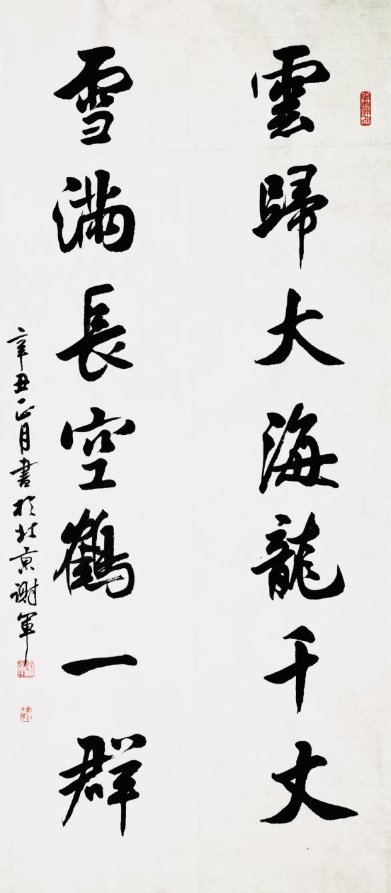 雲歸大海龍千丈
雪滿長空鶴一群
辛丑正月書於北京謝軍